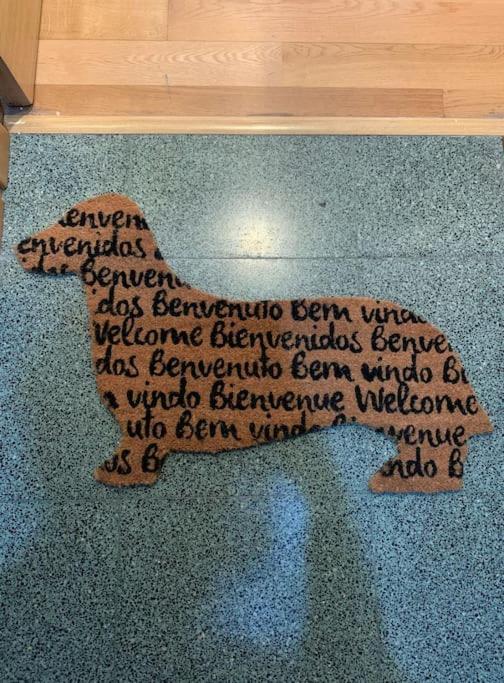 envenidos
Benven
dos Benvenuto Bem vinda
Welcome Bienvenidos Benve
dos Benvenuto Bem vindo Bi
vindo Bienvenue Welcome
uto Bem vindo venue
os B ndo B